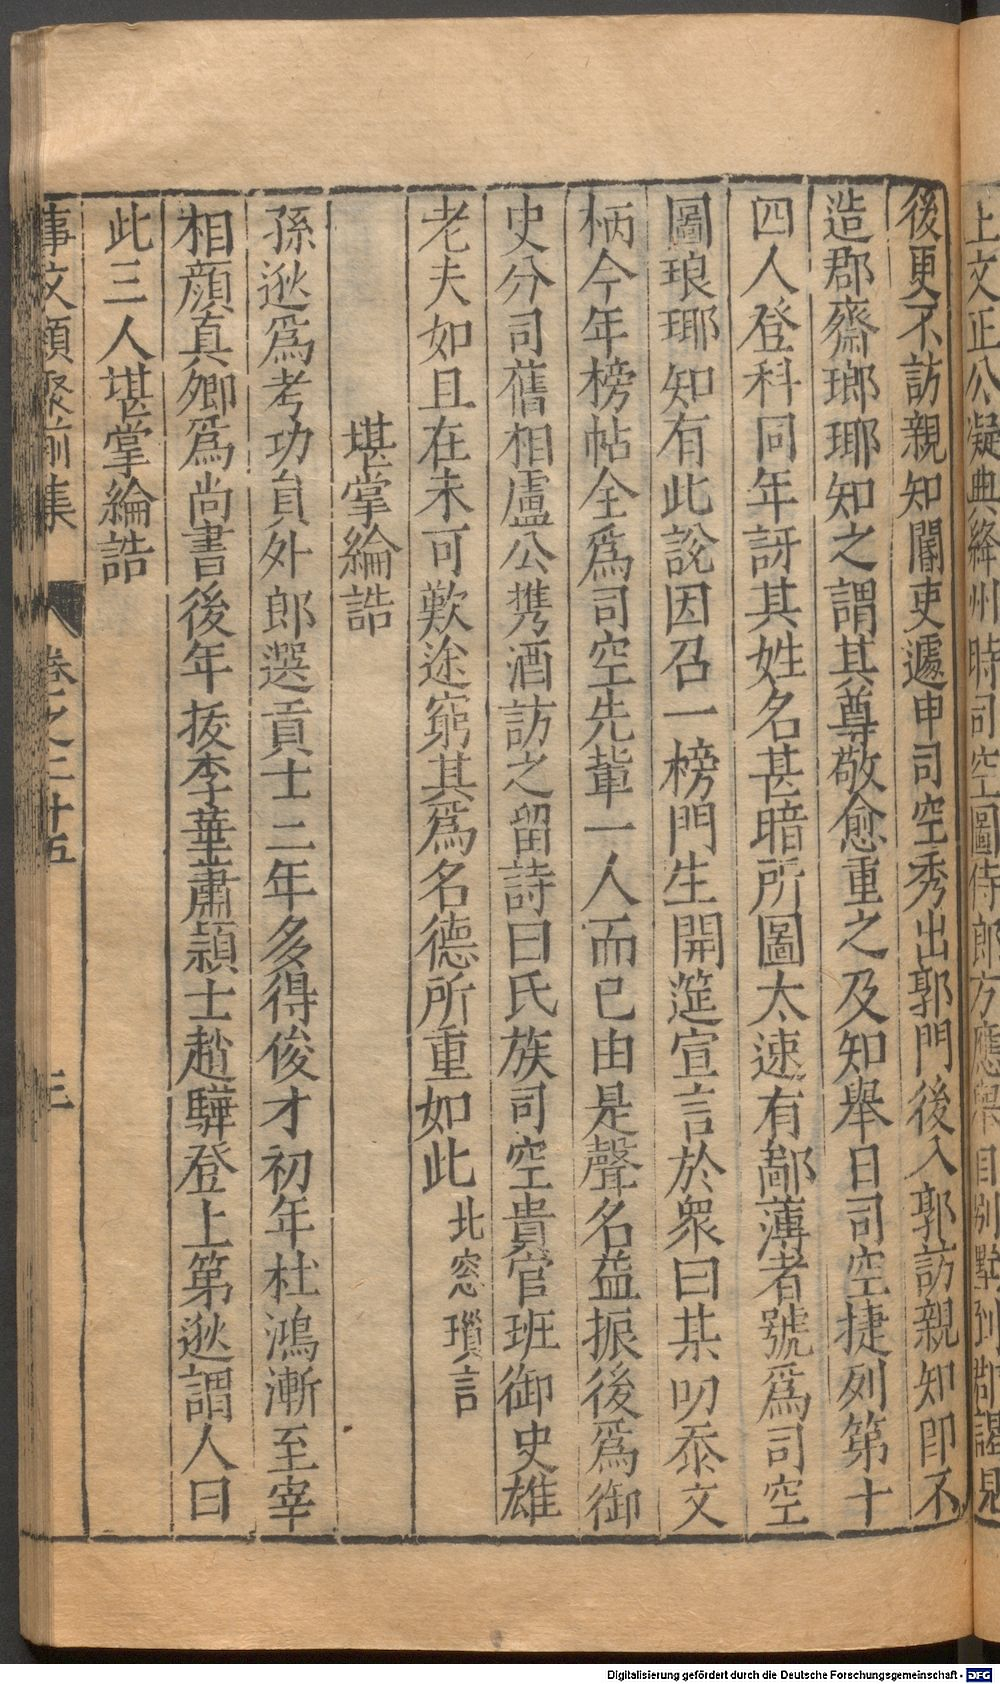 上文正公凝典絳州時司空圖侍郎方應舉自別墅到郡謁見
後更不訪親知閽吏遽申司空秀出郭門後入郭訪親知即不
造郡齋瑯琊知之謂其尊敬愈重之及知舉日司空捷列第十
四人登科同年訝其姓名甚暗所圖太速有鄙薄者號爲司空
圖琅琊知有此說因召一榜門生開筵宣言於衆曰某叨忝文
柄今年榜帖全爲司空先輩一人而已由是聲名益振後爲御
史分司舊相盧公携酒訪之留詩曰氏族司空貴官班御史雄
老夫如且在未可歎途窮其爲名德所重如此 北窓瑣言
堪掌綸誥
孫逖爲考功貟外郎選貢士二年多得俊才初年杜鴻漸至宰
相顔真卿爲尚書後年拔李華蕭頴士趙驊登上第逖謂人曰
此三人堪掌綸誥
事文類聚前集 卷之二十五 三
Digitalisierung gefördert durch die Deutsche Forschungsgemeinschaft - DFG